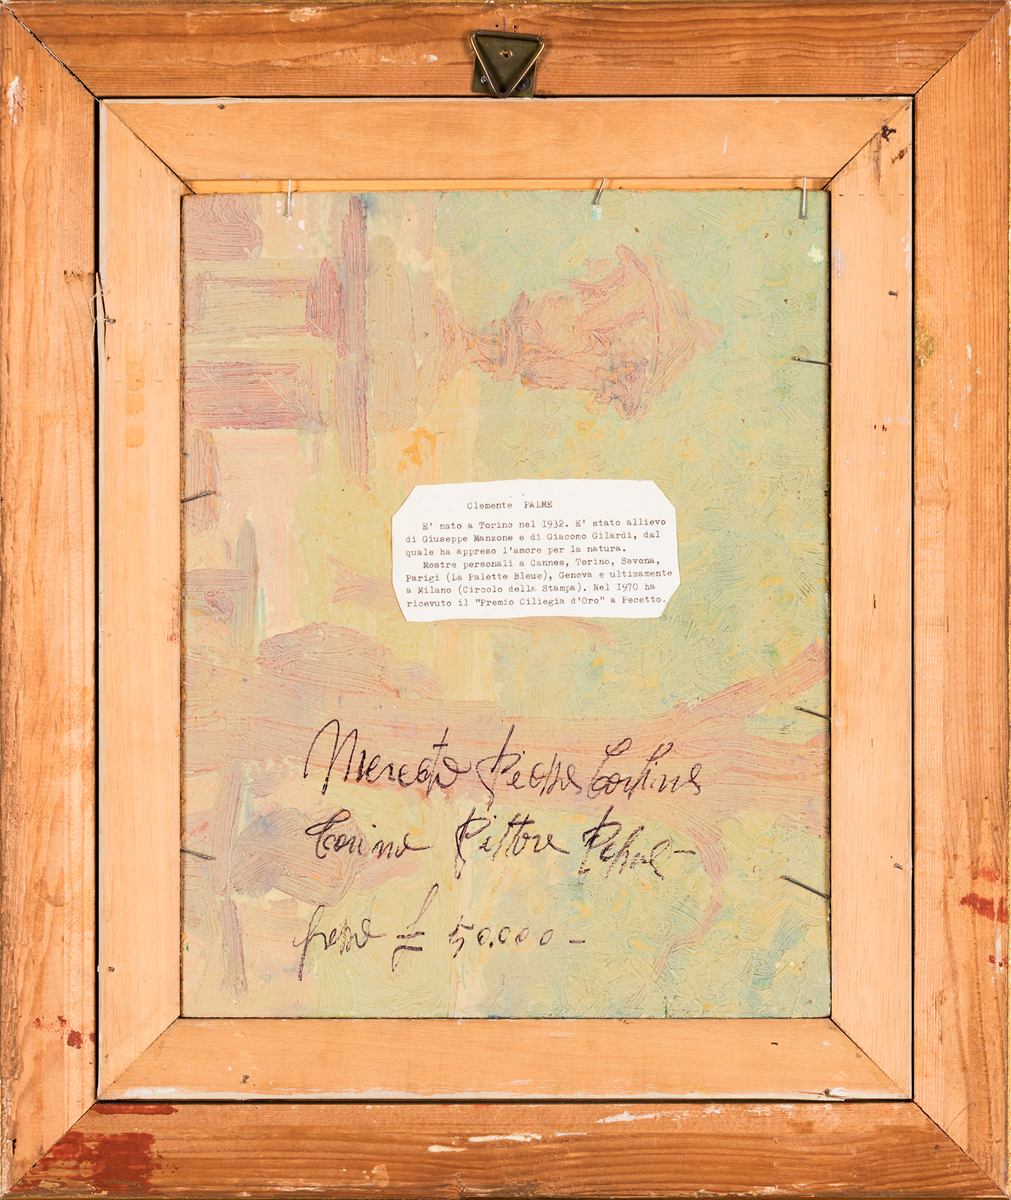 Clemente PALME
E' nato a Torino nel 1932. E' stato allievo
di Giuseppe Manzone e di Giacomo Gilardi, dal
quale ha appreso l'amore per la natura.
Mostre personali a Cannes, Torino, Savona,
Parigi (La Palette Bleue), Genova e ultimamente
a Milano (Circolo della Stampa). Nel 1970 ha
ricevuto il "Premio Ciliegia d'Oro" a Pecetto.
Mercato
Torino Pittore Palme -
£ 50.000 -